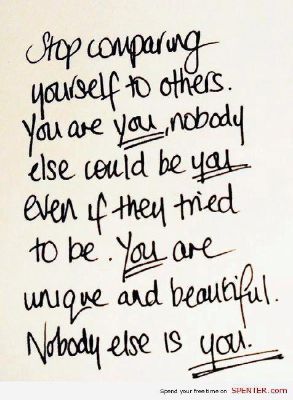 Stop comparing
yourself to others.
You are you, nobody
else could be you
even if they tried
to be. You are
unique and beautiful.
Nobody else is you.
Spend your free time on SPENTER.com